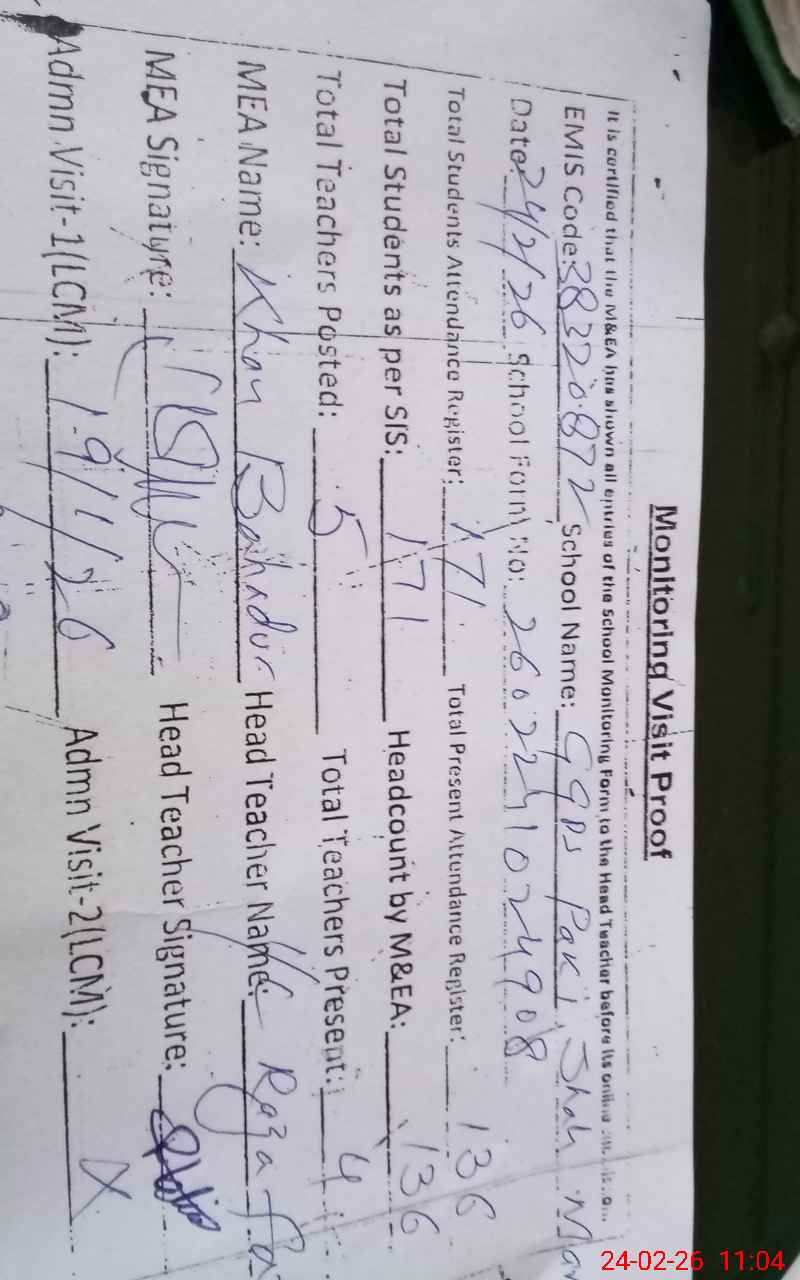 Monitoring Visit Proof
It is certified that the M&EA has shown all entries of the School Monitoring Form to the Head Teacher before its online
EMIS Code: 38320872 School Name: GGPS Paki, Shah
Date: 24/2/26 School Form No: 2602241024908
Total Students Attendance Register: 171 Total Present Attendance Register: 136
Total Students as per SIS: 171 Headcount by M&EA: 136
Total Teachers Posted: 5 Total Teachers Present: 4
MEA Name: Khan Bahadur Head Teacher Name:
MEA Signature: Head Teacher Signature:
Admn Visit-1(LCM): 19/1/26 Admn Visit-2(LCM): X
24-02-26 11:04